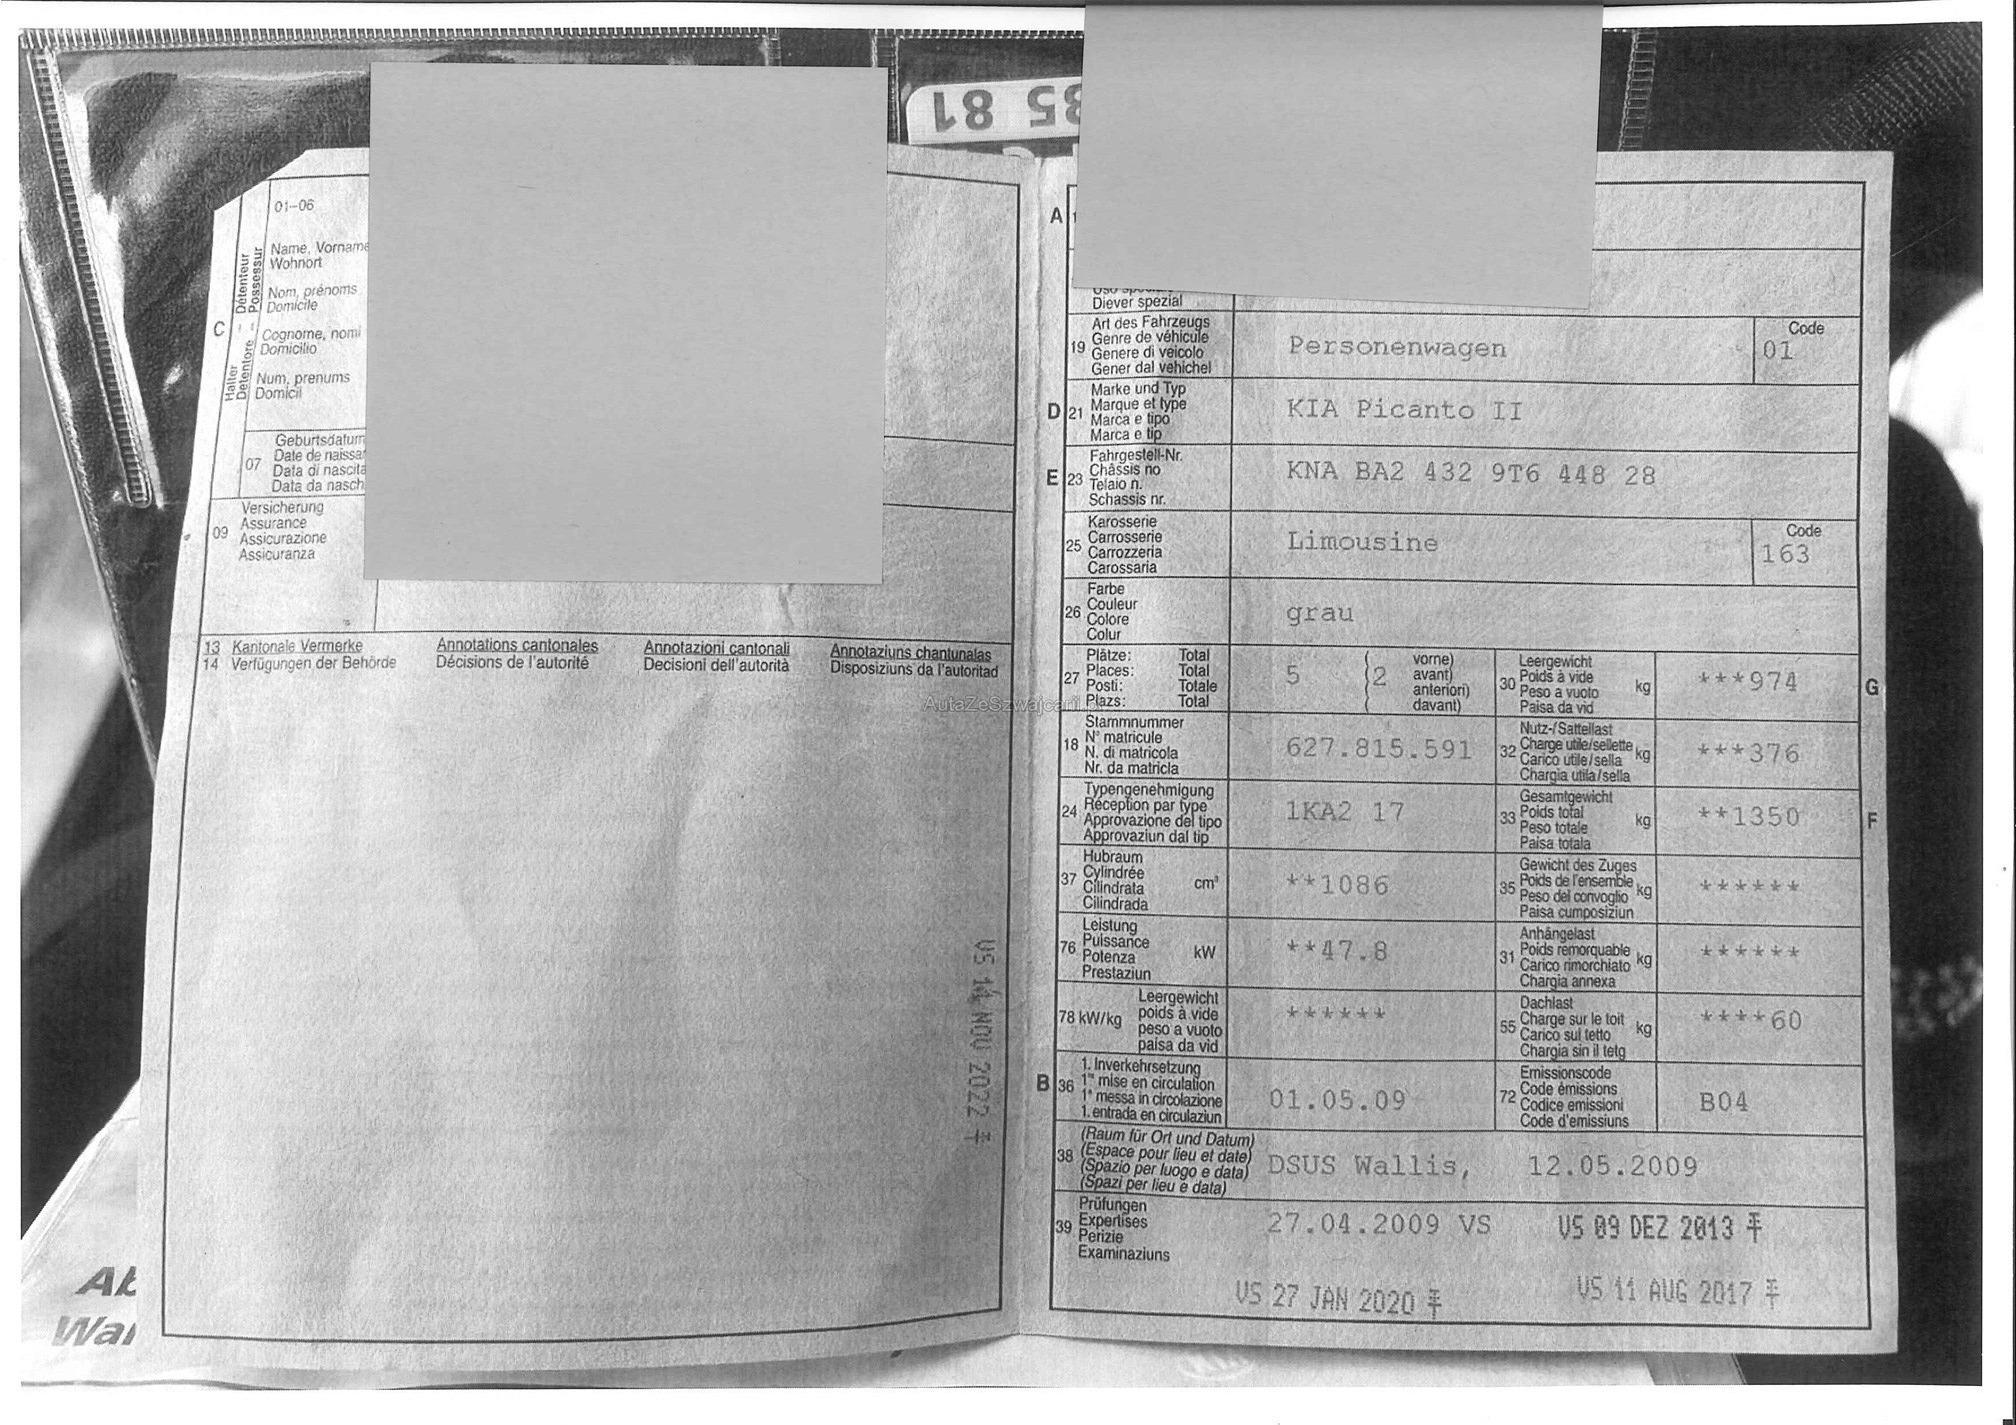 85 81
01–06
Name, Vorname
Wohnort
Nom, prénoms
Domicile
Cognome, nomi
Domicilio
Num, prenums
Domicil
C
Halter – Détenteur
Detentore – Possessur
07
Geburtsdatum
Date de naissa
Data di nascita
Data da nasch
09
Versicherung
Assurance
Assicurazione
Assicuranza
13 Kantonale Vermerke Annotations cantonales Annotazioni cantonali Annotaziuns chantunalas
14 Verfügungen der Behörde Décisions de l'autorité Decisioni dell'autorità Disposiziuns da l'autoritad
AutaZeSzwajcarii
VS 14 NOV 2022
A
Diever spezial
19
Art des Fahrzeugs
Genre de véhicule
Genere di veicolo
Gener dal vehichel
Personenwagen
Code
01
D 21
Marke und Typ
Marque et type
Marca e tipo
Marca e tip
KIA Picanto II
E 23
Fahrgestell-Nr.
Châssis no
Telaio n.
Schassis nr.
KNA BA2 432 9T6 448 28
25
Karosserie
Carrosserie
Carrozzeria
Carossaria
Limousine
Code
163
26
Farbe
Couleur
Colore
Colur
grau
27
Plätze: Total
Places: Total
Posti: Totale
Plazs: Total
5 (2
vorne)
avant)
anteriori)
davant)
30
Leergewicht
Poids à vide
Peso a vuoto
Paisa da vid
kg
***974
G
18
Stammnummer
N° matricule
N. di matricola
Nr. da matricla
627.815.591
32
Nutz-/Sattellast
Charge utile/sellette
Carico utile/sella
Chargia utila/sella
kg
***376
24
Typengenehmigung
Réception par type
Approvazione del tipo
Approvaziun dal tip
1KA2 17
33
Gesamtgewicht
Poids total
Peso totale
Paisa totala
kg
**1350
F
37
Hubraum
Cylindrée
Cilindrata
Cilindrada
cm³
**1086
35
Gewicht des Zuges
Poids de l'ensemble
Peso del convoglio
Paisa cumposiziun
kg
******
76
Leistung
Puissance
Potenza
Prestaziun
kW
**47.8
31
Anhängelast
Poids remorquable
Carico rimorchiato
Chargia annexa
kg
******
78 kW/kg
Leergewicht
poids à vide
peso a vuoto
paisa da vid
******
55
Dachlast
Charge sur le toit
Carico sul tetto
Chargia sin il tetg
kg
****60
B 36
1. Inverkehrsetzung
1re mise en circulation
1a messa in circolazione
1. entrada en circulaziun
01.05.09
72
Emissionscode
Code émissions
Codice emissioni
Code d'emissiuns
B04
38
(Raum für Ort und Datum)
(Espace pour lieu et date)
(Spazio per luogo e data)
(Spazi per lieu e data)
DSUS Wallis, 12.05.2009
39
Prüfungen
Expertises
Perizie
Examinaziuns
27.04.2009 VS
VS 09 DEZ 2013
VS 27 JAN 2020
VS 11 AUG 2017